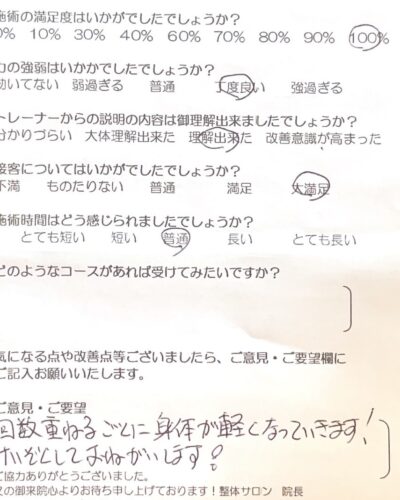 施術の満足度はいかがでしたでしょうか？
0% 10% 30% 40% 60% 70% 80% 90% 100%
力の強弱はいかかでしたでしょうか？
効いてない 弱過ぎる 普通 丁度良い 強過ぎる
トレーナーからの説明の内容は御理解出来ましたでしょうか？
分かりづらい 大体理解出来た 理解出来た 改善意識が高まった
接客についてはいかがでしたでしょうか？
不満 ものたりない 普通 満足 大満足
施術時間はどう感じられましたでしょうか？
とても短い 短い 普通 長い とても長い
どのようなコースがあれば受けてみたいですか？
気になる点や改善点等ございましたら、ご意見・ご要望欄に
ご記入お願いいたします。
ご意見・ご要望
回数重ねるごとに身体が軽くなっていきます！
けいぞくしておねがいします！
ご協力ありがとうございました。
又の御来院心よりお待ち申し上げております！整体サロン 院長